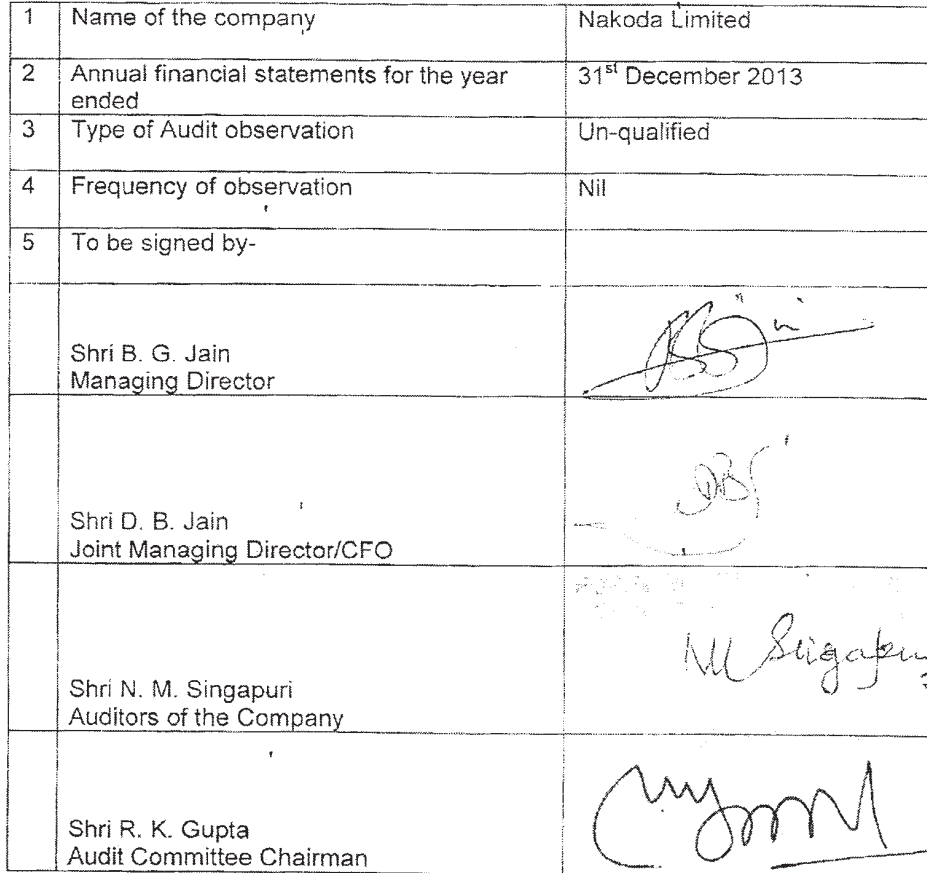 1 Name of the company Nakoda Limited
2 Annual financial statements for the year 31st December 2013
ended
3 Type of Audit observation Un-qualified
4 Frequency of observation Nil
5 To be signed by-
Shri B. G. Jain
Managing Director
Shri D. B. Jain
Joint Managing Director/CFO
Shri N. M. Singapuri
Auditors of the Company
Shri R. K. Gupta
Audit Committee Chairman